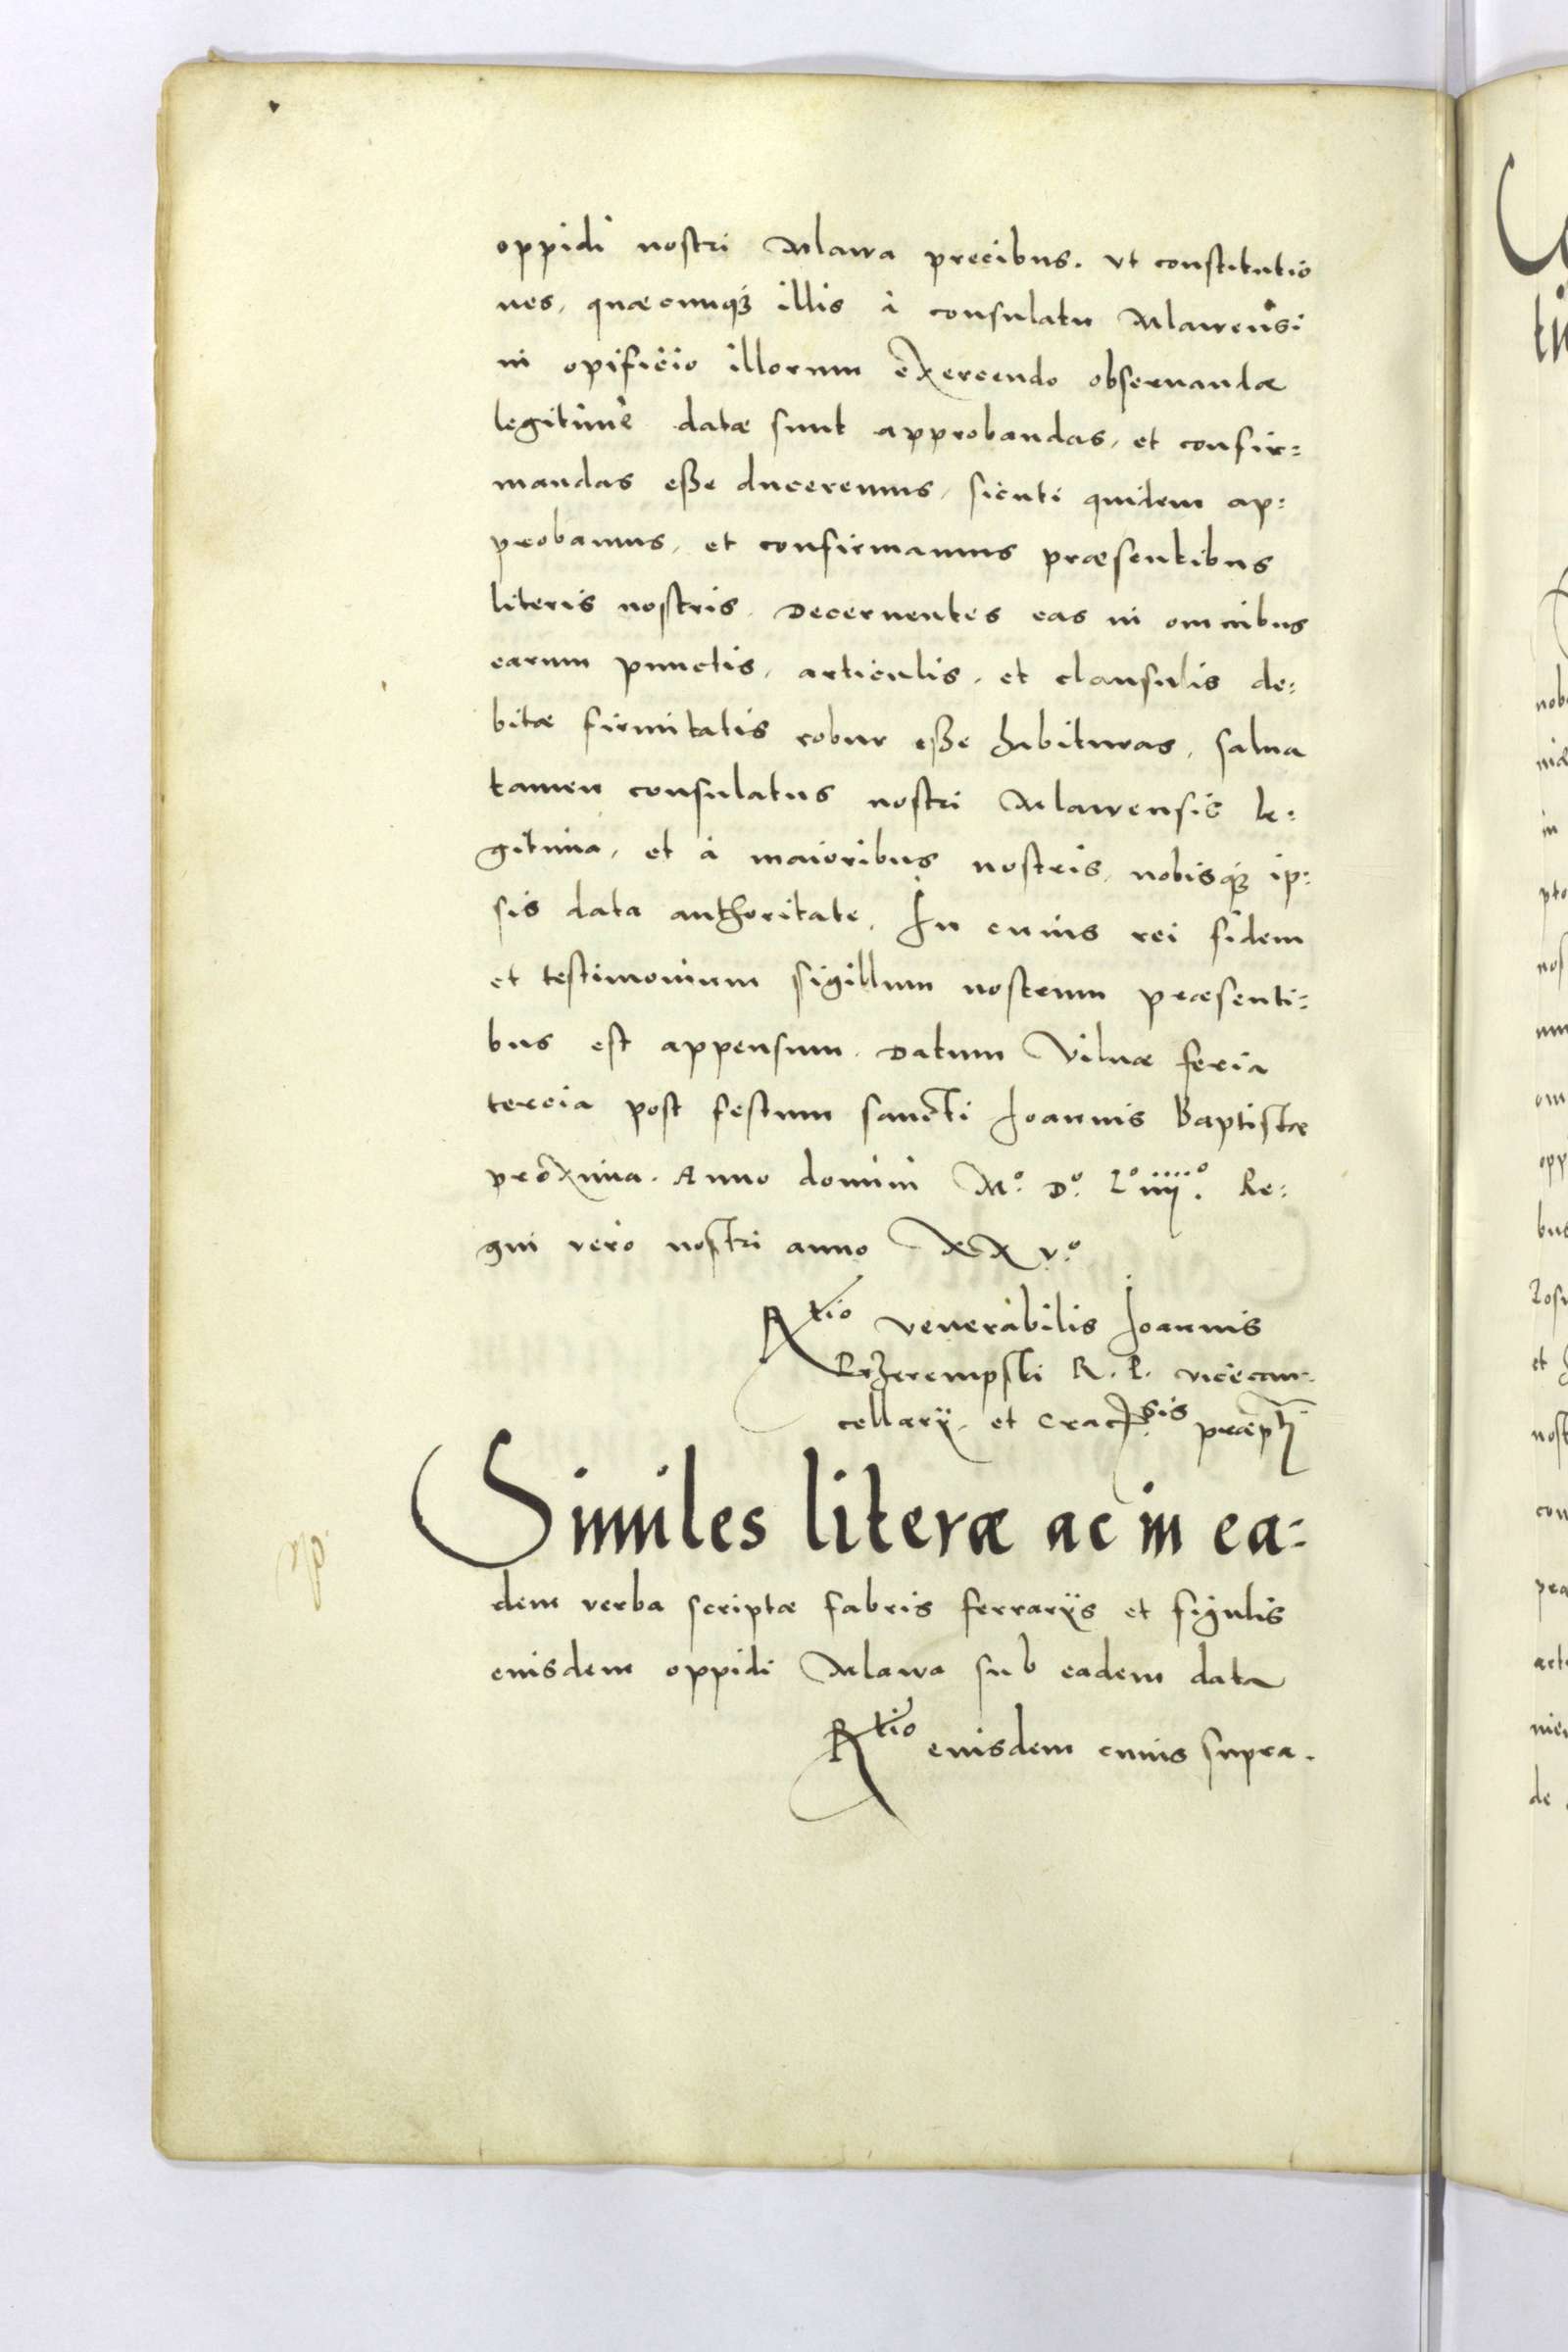 oppidi nostri Mlawa precibus. vt constitutio
nes, quæcunqꝫ illis à consulatu Mlawensi
in opificio illorum exercendo obseruandæ
legitimè datæ sunt approbandas, et confir=
mandas eße duceremus, sicuti quidem ap=
probamus, et confirmamus præsentibus
literis nostris. Decernentes eas in omnibus
earum punctis, articulis, et clausulis de=
bitæ firmitatis robur eße habituras, salua
tamen consulatus nostri Mlawensis le=
gitima, et à maioribus nostris, nobisqꝫ ip=
sis data authoritate. In cuius rei fidem
et testimonium sigillum nostrum præsenti=
bus est appensum. Datum Vilnæ feria
tercia post festum sancti Joannis Baptistæ
proxima. Anno domini Mº. Dº. Lº iiiiº. Re=
gni vero nostri anno XXVº
Rtio venerabilis Joannis
Przerempski R. P. vicecan=
cellarÿ, et Crac. præpti
Similes literæ ac in ea=
dem verba scriptæ fabris ferrarÿs et figulis
eiusdem oppidi Mlawa sub eadem data
Rtio eiusdem cuius supra.